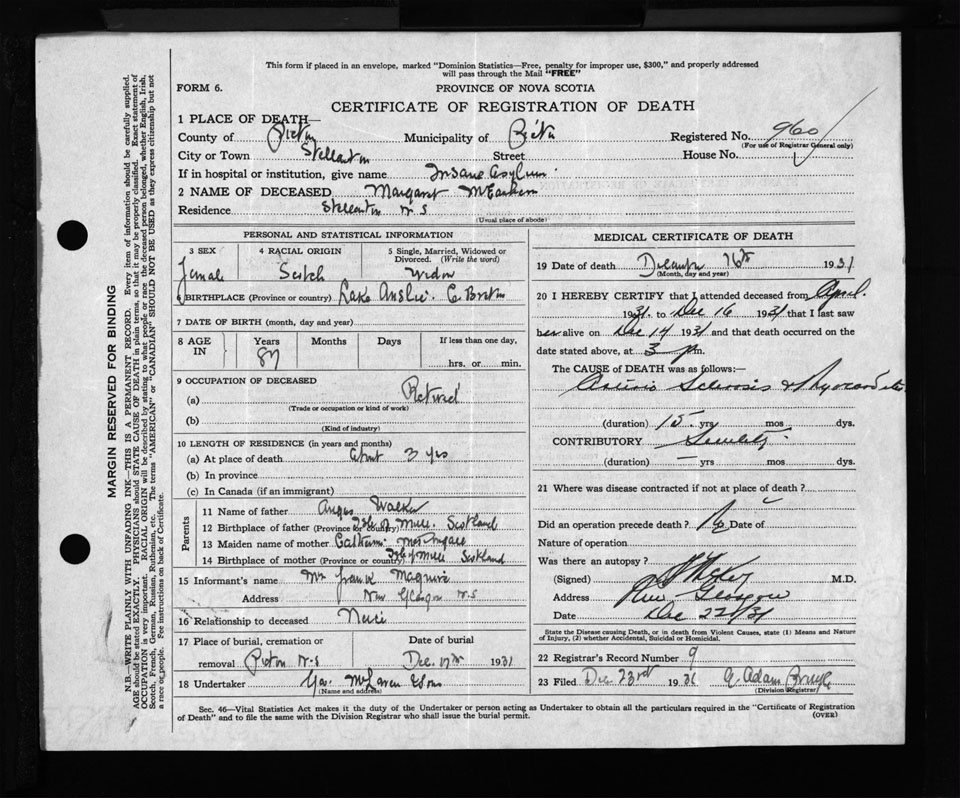 This form if placed in an envelope, marked "Dominion Statistics—Free, penalty for improper use, $300," and properly addressed
will pass through the Mail "FREE"
FORM 6. PROVINCE OF NOVA SCOTIA
CERTIFICATE OF REGISTRATION OF DEATH
1 PLACE OF DEATH—
County of Pictou Municipality of Pictou Registered No. 960
(For use of Registrar General only)
City or Town Stellarton Street House No.
If in hospital or institution, give name Insane Asylum
2 NAME OF DECEASED Margaret McEachern
Residence Stellarton N S
(Usual place of abode)
PERSONAL AND STATISTICAL INFORMATION
3 SEX 4 RACIAL ORIGIN 5 Single, Married, Widowed or Divorced. (Write the word)
Female Scotch Widow
6 BIRTHPLACE (Province or country) Lake Anslie C. Breton
7 DATE OF BIRTH (month, day and year)
8 AGE IN Years Months Days If less than one day,
87 hrs. or min.
9 OCCUPATION OF DECEASED
(a) Retired
(Trade or occupation or kind of work)
(b)
(Kind of industry)
10 LENGTH OF RESIDENCE (in years and months)
(a) At place of death About 3 yrs
(b) In province
(c) In Canada (if an immigrant)
Parents
11 Name of father Angus Walker
12 Birthplace of father (Province or country) Isle of Mull. Scotland
13 Maiden name of mother
14 Birthplace of mother (Province or country) Isle of Mull Scotland
15 Informant's name Mrs Frank Maguire
Address New Glasgow N.S
16 Relationship to deceased Neice
17 Place of burial, cremation or Date of burial
removal Pictou N.S Dec. 17th 1931
18 Undertaker Geo. McLaren & Sons
(Name and address)
MEDICAL CERTIFICATE OF DEATH
19 Date of death December 16th 1931
(Month, day and year)
20 I HEREBY CERTIFY that I attended deceased from April
1931 to Dec 16 1931 that I last saw
her alive on Dec 14 1931 and that death occurred on
date stated above, at 3 p m.
The CAUSE OF DEATH was as follows:—
Arterio Sclerosis & Myocarditis
(duration) 15 yrs mos dys.
CONTRIBUTORY Senility
(duration) — yrs mos dys.
21 Where was disease contracted if not at place of death?
Did an operation precede death? No Date of
Nature of operation
Was there an autopsy?
(Signed) M.D.
Address New Glasgow
Date Dec 22/31
State the Disease causing Death, or in death from Violent Causes, state (1) Means and Nature
of Injury, (2) whether Accidental, Suicidal or Homicidal.
22 Registrar's Record Number 9
23 Filed Dec 23rd 1931 Adam
(Division Registrar)
Sec. 46—Vital Statistics Act makes it the duty of the Undertaker or person acting as Undertaker to obtain all the particulars required in the "Certificate of Registration
of Death" and to file the same with the Division Registrar who shall issue the burial permit. (OVER)
MARGIN RESERVED FOR BINDING
N.B.—WRITE PLAINLY WITH UNFADING INK—THIS IS A PERMANENT RECORD. Every item of information should be carefully supplied.
AGE should be stated EXACTLY. PHYSICIANS should STATE CAUSE OF DEATH in plain terms, so that it may be properly classified. Exact statement of
OCCUPATION is very important. RACIAL ORIGIN will be described by stating to what people or race the deceased person belonged, whether English, Irish,
Scotch, French, German, Russian, Ruthenian, etc. The terms "AMERICAN" or "CANADIAN" SHOULD NOT BE USED as they express citizenship but not
a race or people. Fee instructions on back of Certificate.